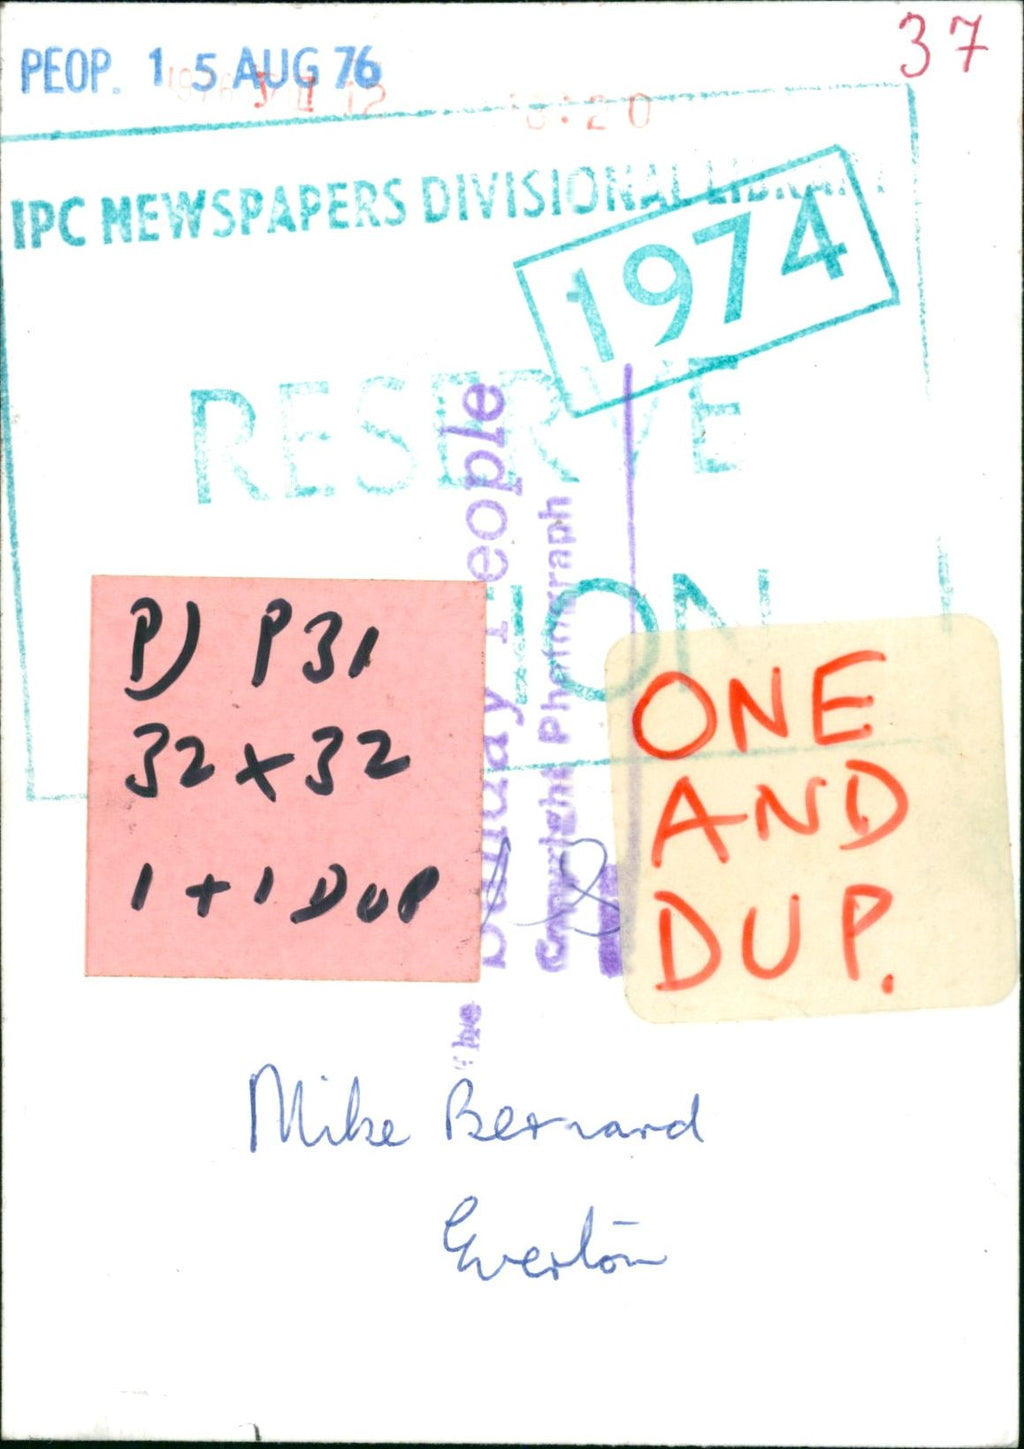 37
PEOP. 15 AUG 76
IPC NEWSPAPERS DIVISIONAL LIBRARY
1974
RESERVE
The Sunday People
Copyright Photograph
P) P31
32 x 32
1 + 1 DUP
ONE
AND
DUP.
Mike Bernard
Everton